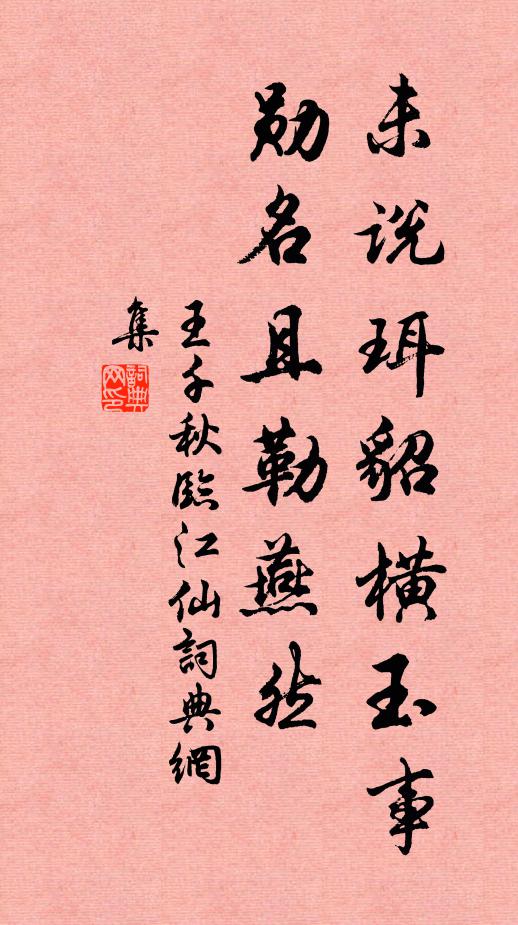 未说珥貂横玉事
勋名且勒燕然
王千秋臨江仙詞典網
集
詞典网印